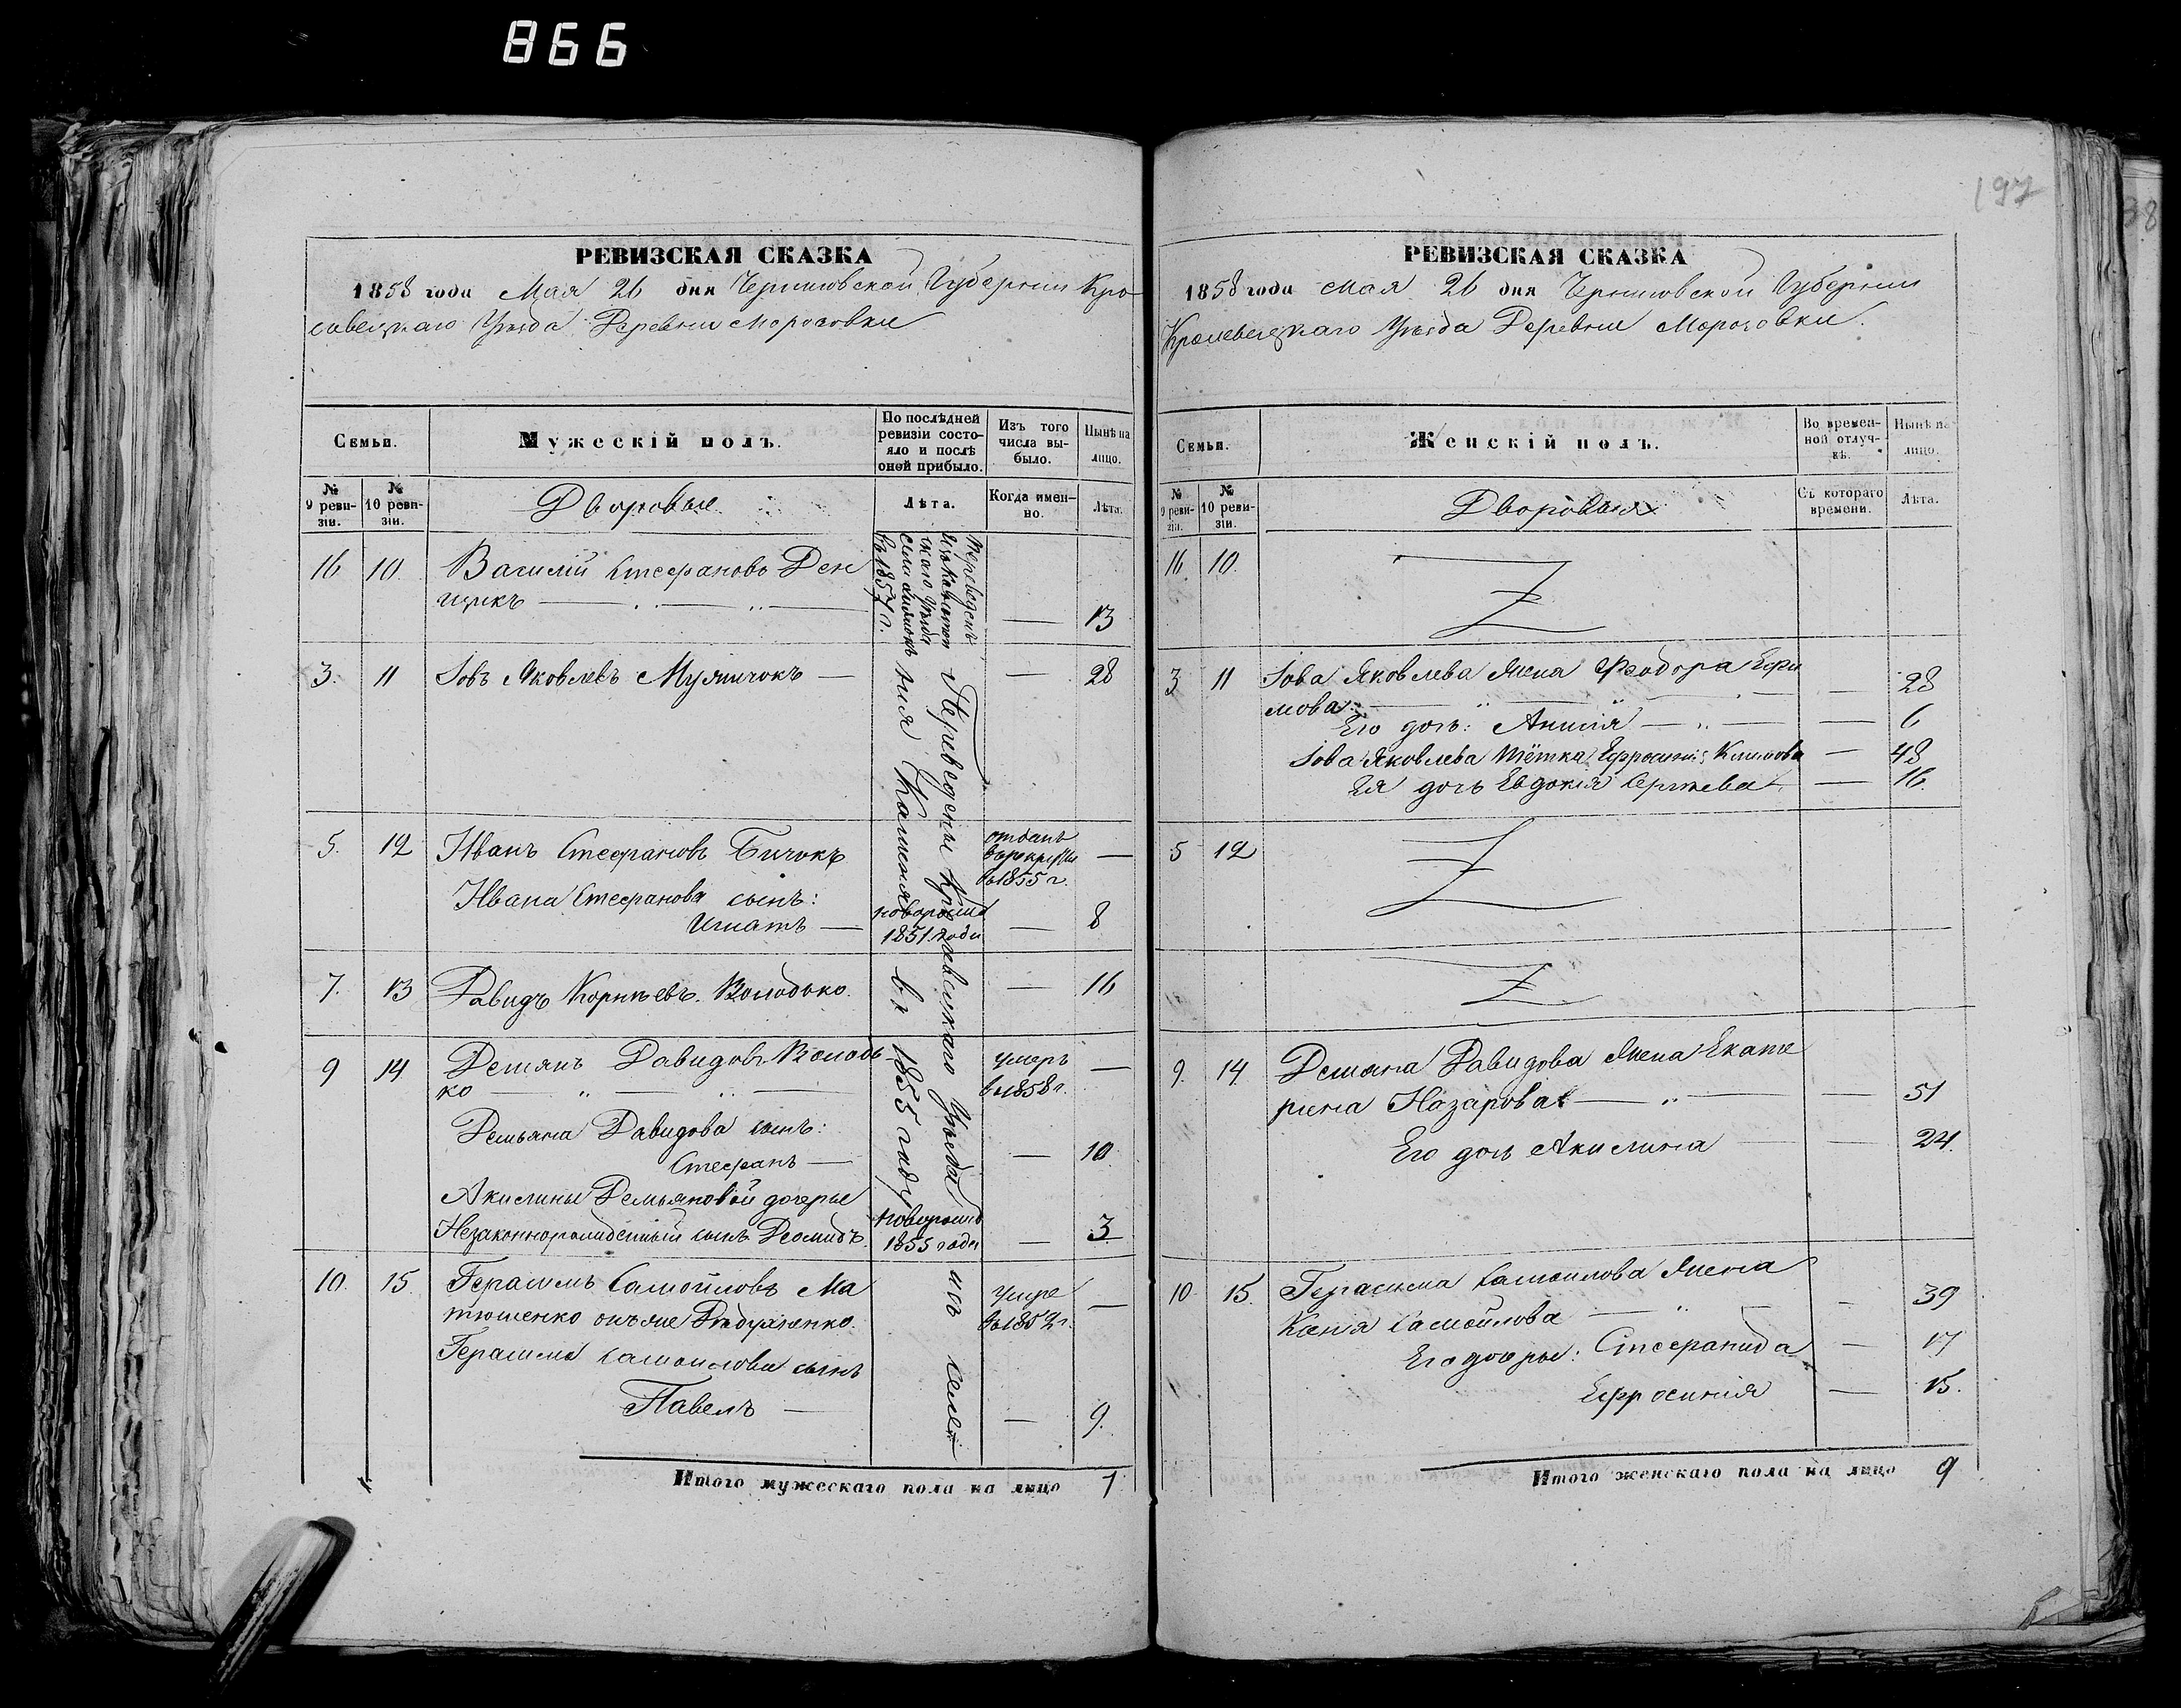 866
197
38
РЕВИЗСКАЯ СКАЗКА
1858 года Мая 26 дня Черниговской Губернии Кро
левецкаго Уѣзда Деревни Морозовки
Семьи.
Мужескій полъ.
По послѣдней ревизіи состояло и послѣ оной прибыло.
Изъ того числа выбыло.
Нынѣ на лицо.
№ 9 ревизіи.
№ 10 ревизіи.
Дворовые
Лѣта.
Когда именно.
Лѣта.
16 10. Василій Стефановъ Ден
щикъ — 13
Переведенъ
скаго Уѣзда
въ 1857 г.
3. 11 Іовъ Яковлевъ — 28
5. 12 Иванъ Стефановъ Бичокъ
отданъ
въ рекруты
въ 1855 г. —
Ивана Стефанова сынъ:
Игнатъ —
новорожд
1851 года — 8
7. 13 Давидъ Корнѣевъ Володько. — 16
9 14 Демянъ Давидовъ Володь
ко —
умеръ
въ 1858 г. —
Демьяна Давидова сынъ:
Стефанъ — — 10
Акилины Демьяновой дочери
Незаконнорожденный сынъ Деомидъ.
новорожд
1855 года — 3
10. 15. Герасимъ Самойловъ Ма
тюшенко онъ же
умре
въ 1852 г. —
Герасима Самойлова сынъ
Павелъ — — 9.
Переведены Кролевецкаго Уѣзда
изъ села
въ 1855 году
Итого мужескаго пола на лицо 7
РЕВИЗСКАЯ СКАЗКА
1858 года Мая 26 дня Черниговской Губернии
Кролевецкаго Уѣзда Деревни Морозовки.
Семьи.
Женскій полъ.
Во временной отлучкѣ.
Нынѣ на лицо.
№ 9 ревизіи.
№ 10 ревизіи.
Дворовыя
Съ котораго времени.
Лѣта.
16. 10.
3 11 Іова Яковлева Жена Феодора Ефи
мова — — 28
Его дочь: Анисія — — 6
Іова Яковлева тётка Ефросинія Климова — 48
Ея дочь Евдокія Сергѣева — 16.
5 12
9. 14 Демяна Давидова Жена Екате
рина Назарова — — 51
Его дочь Акилина — — 24.
10 15. Герасима Самойлова Жена
Ксенія Самойлова — — 39
Его дочери: Стефанида — 17
Ефросинія — 15.
Итого женскаго пола на лицо 9